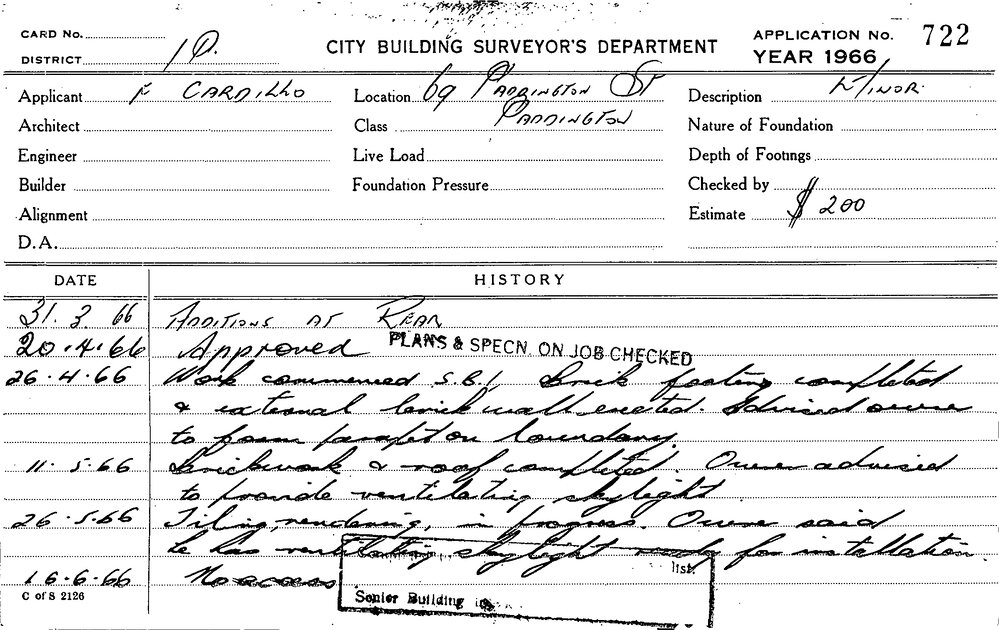 CARD No.
DISTRICT 1 D.
CITY BUILDING SURVEYOR'S DEPARTMENT
APPLICATION No. 722
YEAR 1966
Applicant F CARDILLO
Location 69 PADDINGTON ST
PADDINGTON
Description MINOR.
Architect
Class
Nature of Foundation
Engineer
Live Load
Depth of Footings
Builder
Foundation Pressure
Checked by
Alignment
Estimate $ 200
D.A.
DATE HISTORY
31. 3. 66 ADDITIONS AT REAR
20.4.66 Approved PLANS & SPECN. ON JOB CHECKED
26.4.66 Work commenced S.B.I. Brick footing completed
& external brick wall erected. Advised owner
to form parapet on boundary.
11.5.66 Brickwork & roof completed. Owner advised
to provide ventilating skylight
26.5.66 Tiling, rendering, in progress. Owner said
he has ventilating skylight ready for installation.
list.
16.6.66 No access
Senior Building
C of S 2126